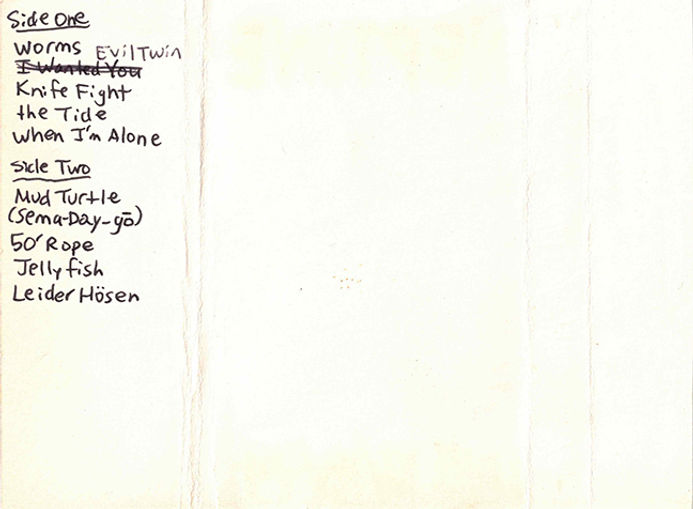 Side One
Worms Evil Twin
I Wanted You
Knife Fight
the Tide
When I'm Alone
Side Two
Mud Turtle
(Sema-Day-gō)
50' Rope
Jellyfish
Leider Hösen